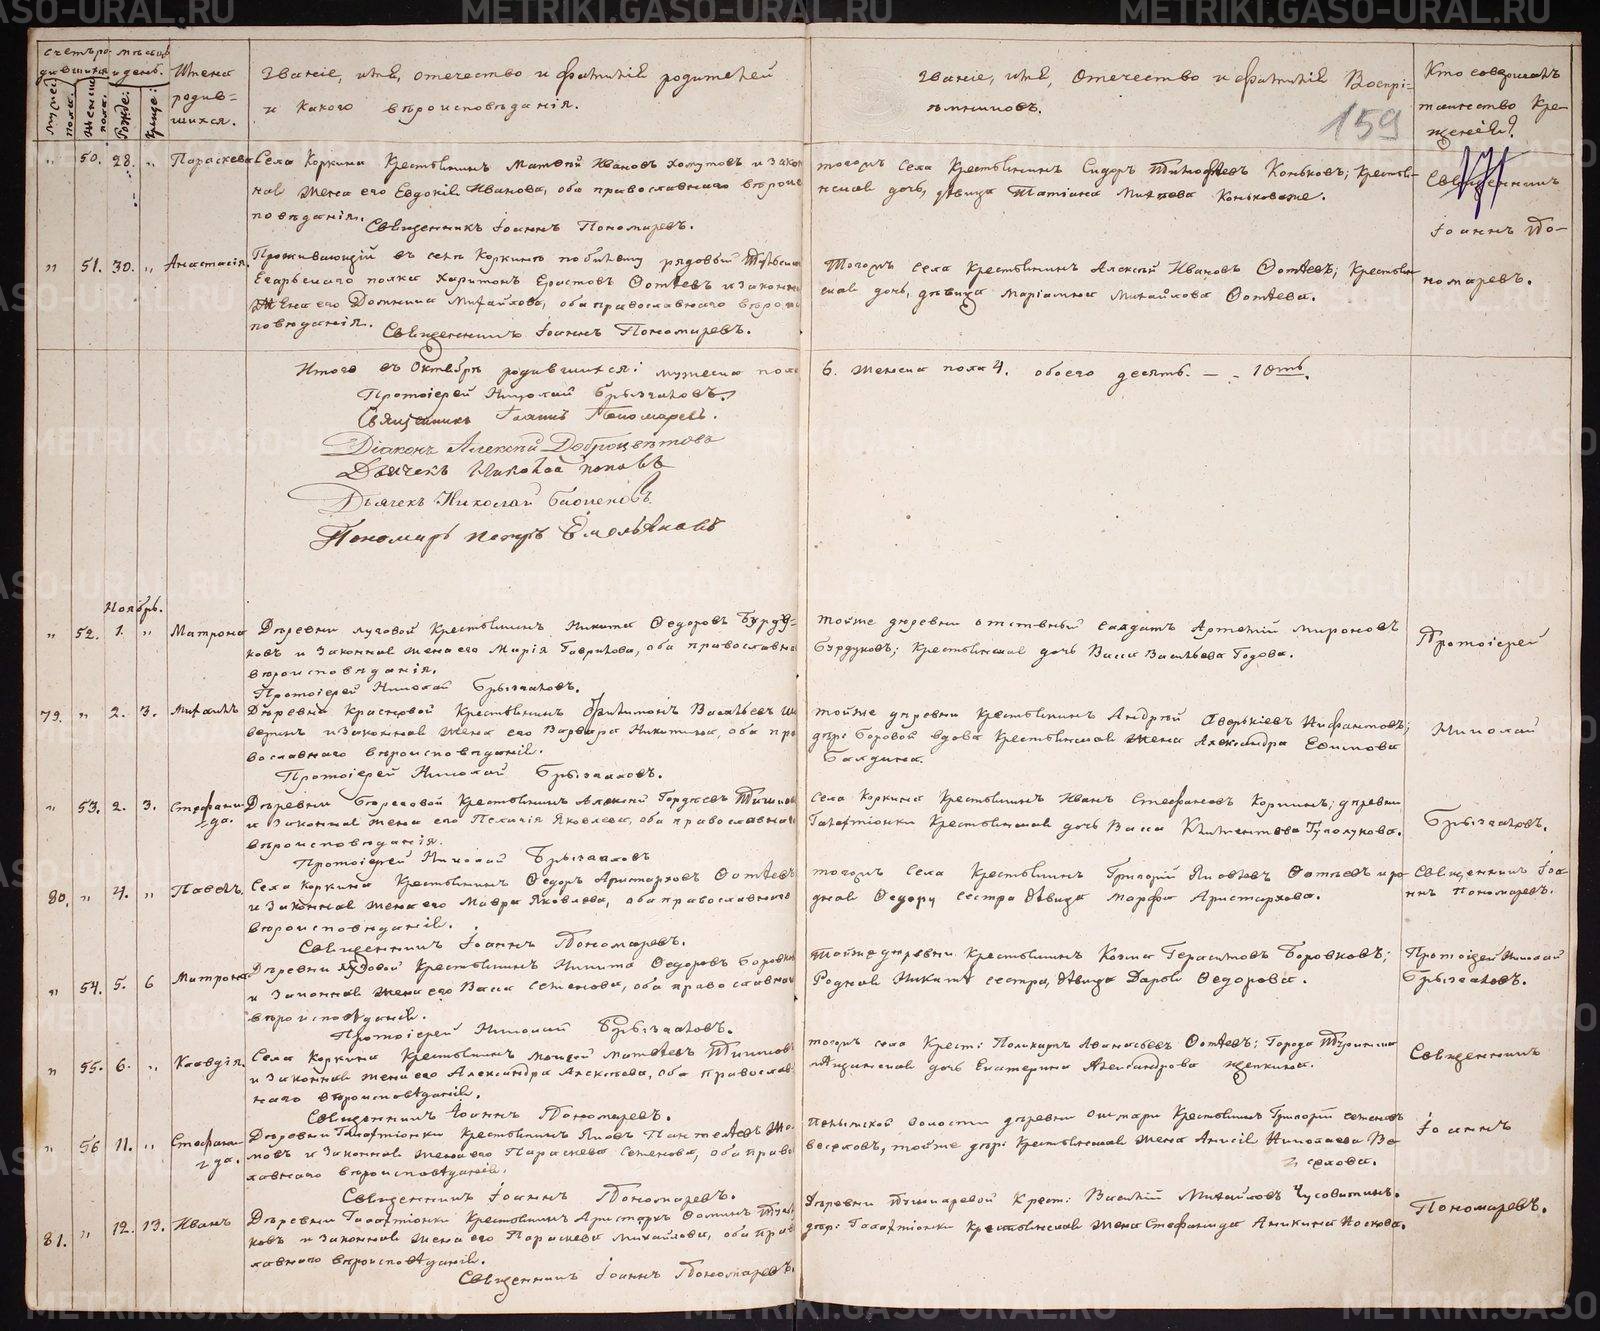 METRIKI.GASO-URAL.RU
Счетъ ро- Мѣсяцъ
дившихся и день. Имена
родив-
шихся.
Мужеска
пола.
Женска
пола.
Рожде:
Креще:
Званіе, имя, отечество и фамилія родителей
и какого вѣроисповѣданія.
Званіе, имя, отечество и фамилія Воспрі-
ѣмниковъ.
Кто совершалъ
таинство Кре-
щенія?
159
171
" 50. 28. " Параскева Села Коркина Крестьянинъ Матвѣй Ивановъ Хомутовъ и закон
ная жена его Евдокія Иванова, оба православнаго вѣроис
повѣданія.
Священникъ Іоаннъ Пономаревъ.
тогожъ Села Крестьянинъ Сидоръ Тимофѣевъ Коньковъ; крестьян-
ская дочь, дѣвица Татіана
Священникъ
Іоаннъ По-
номаревъ.
" 51. 30. " Анастасія. Проживающій въ селѣ Коркиномъ рядовый
Егарьскаго полка Харитонъ Ерастовъ Фотѣевъ и законная
жена его Домника Михайлова, оба православнаго вѣроис
повѣданія. Священникъ Іоаннъ Пономаревъ.
Тогожъ села Крестьянинъ Алексѣй Ивановъ Фотѣевъ; Крестьян
ская дочь, дѣвица Маріамна Михайлова Фотѣева.
Итого въ Октябрѣ родившихся: мужеска пола 6. женска пола 4. обоего десять. — 10ть.
Протоіерей Николай Брызгаловъ.
Священникъ Іоаннъ Пономаревъ.
Діаконъ Алексѣй Доброцвѣтовъ
Дьячекъ Николай Поповъ
Дьячекъ Николай
Пономарь Петръ Емельяновъ
Ноябрь.
" 52. 1. " Матрона Деревни Луговой Крестьянинъ Никита Федоровъ Бурду-
ковъ и законная жена его Марія Гаврилова, оба православна
вѣроисповѣданія.
Протоіерей Николай Брызгаловъ.
Тойже деревни отставный солдатъ Артемій Мироновъ
Бурдуковъ; крестьянская дочь Васса Васильева Годова.
Протоіерей
Николай
Брызгаловъ.
79. " 2. 3. Михаилъ Деревни Красновой Крестьянинъ Филимонъ Васильевъ
и законная жена его Варвара Никитина, оба пра
вославнаго вѣроисповѣданія.
Протоіерей Николай Брызгаловъ.
тойже деревни Крестьянинъ Андрей Аверькіевъ Нифантовъ;
дер: Боровой вдова крестьянская жена Александра Ефимова
Балдина.
" 53. 2. 3. Стефани-
да. Деревни Береговой Крестьянинъ Алексѣй Гордѣевъ
и законная жена его Пелагія Яковлева, оба православнаго
вѣроисповѣданія.
Протоіерей Николай Брызгаловъ
Села Коркина Крестьянинъ Иванъ Стефановъ Коркинъ; деревни
Галактіонки Крестьянская дочь Васса Климентова
80. " 4. " Павелъ. Села Коркина Крестьянинъ Федоръ Аристарховъ Фотѣевъ
и законная жена его Мавра Яковлева, оба православнаго
вѣроисповѣданія.
Священникъ Іоаннъ Пономаревъ.
тогожъ Села Крестьянинъ Григорій Яковлевъ Фотѣевъ и ро-
дная Федору сестра дѣвица Марфа Аристархова.
Священникъ Іоа-
ннъ Пономаревъ.
" 54. 5. 6 Матрона Деревни Луговой Крестьянинъ Никита Федоровъ Боровков
и законная жена его Васса Семенова, оба православнаго
вѣроисповѣданія.
Протоіерей Николай Брызгаловъ.
Тойже деревни Крестьянинъ Козма Герасимовъ Боровковъ;
Родная Никитѣ сестра, дѣвица Дарья Федорова.
Протоіерей Николай
Брызгаловъ.
" 55. 6. " Клавдія. Села Коркина Крестьянинъ Моисей Матвѣевъ
и законная жена его Александра Алексѣева, оба православ
наго вѣроисповѣданія.
Священникъ Іоаннъ Пономаревъ.
тогожъ села Крест: Поликарпъ Афанасьевъ Фотѣевъ; Города Туринска
мѣщанская дочь Екатерина Александрова Щепкина.
Священникъ
Іоаннъ
Пономаревъ.
" 56 11. " Стефани-
да. Деревни Галактіонки Крестьянинъ Яковъ Пантелѣевъ
и законная жена его Параскева Семенова, оба право
славнаго вѣроисповѣданія.
Священникъ Іоаннъ Пономаревъ.
волости деревни Крестьянинъ Григорій Семеновъ
тойже дер: Крестьянская жена Анисія Николаева
81. " 12. 13. Иванъ Деревни Галактіонки Крестьянинъ Аристархъ Фоминъ
ковъ и законная жена его Параскева Михайлова, оба прав
славнаго вѣроисповѣданія.
Священникъ Іоаннъ Пономаревъ.
Деревни Крест: Василій Михайловъ Чусовитинъ.
дер: Галактіонки Крестьянская жена Стефанида Аникина Носкова.